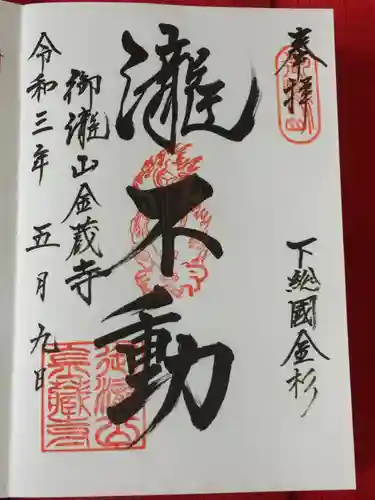 奉拝
下総國金杉
瀧不動
御瀧山金蔵寺
令和三年 五月九日
御瀧山
金蔵寺